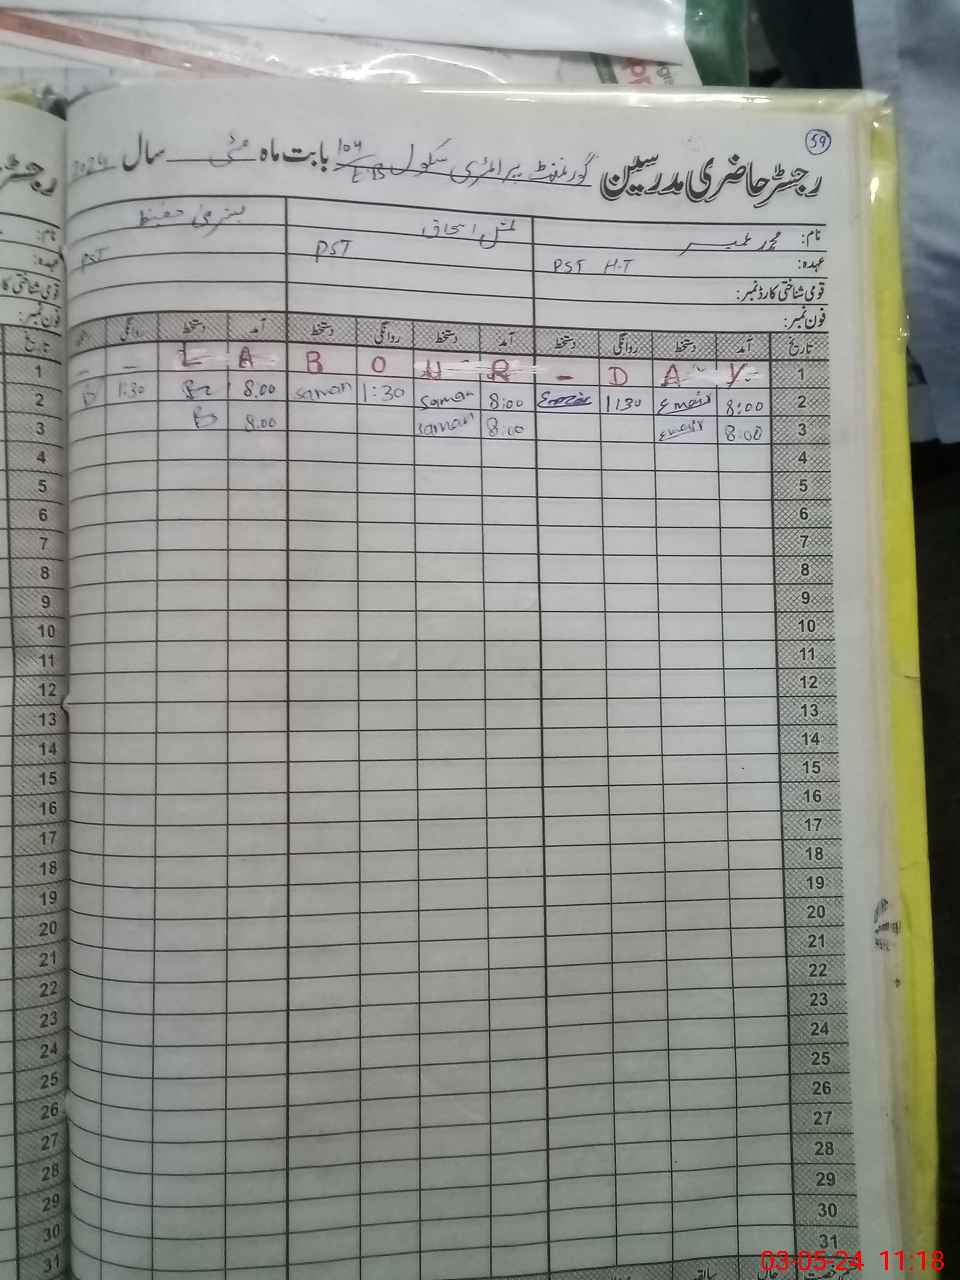 59
رجسٹر حاضری مدرسین گورنمنٹ پرائمری سکول 104/EB بابت ماہ مئی سال 2024
نام: محمد عمیر
عہدہ: PST H.T PST PST
قومی شناختی کارڈ نمبر:
فون نمبر:
تاریخ آمد دستخط روانگی دستخط آمد دستخط روانگی دستخط آمد دستخط روانگی تاریخ
1 L A B O U R - D A Y 1
2 1:30 8.00 saman 1:30 saman 8:00 1:30 8:00 2
3 8.00 saman 8:00 8:00 3
4 4
5 5
6 6
7 7
8 8
9 9
10 10
11 11
12 12
13 13
14 14
15 15
16 16
17 17
18 18
19 19
20 20
21 21
22 22
23 23
24 24
25 25
26 26
27 27
28 28
29 29
30 30
31 31
03-05-24 11:18